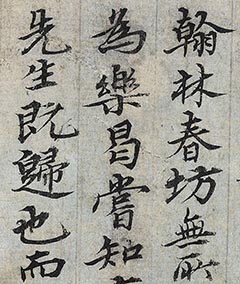 翰林春坊無所
為樂曷嘗知
先生既歸也而